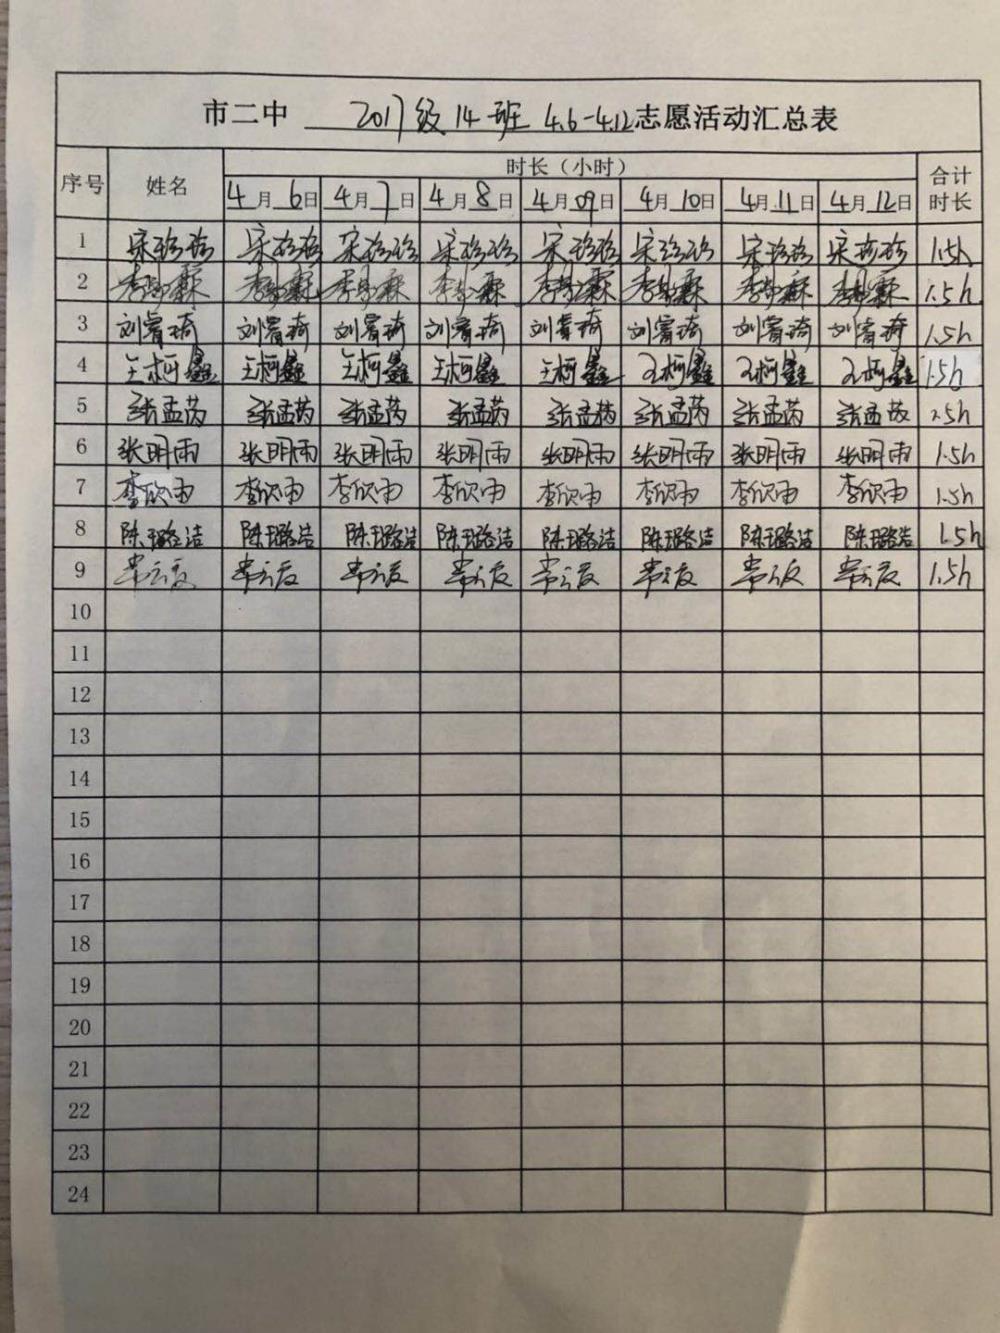 市二中 2017级14班 4.6-4.12志愿活动汇总表
序号 姓名 时长（小时） 合计时长
4月6日 4月7日 4月8日 4月09日 4月10日 4月11日 4月12日
1 宋珍珍 宋珍珍 宋珍珍 宋珍珍 宋珍珍 宋珍珍 宋珍珍 宋珍珍 1.5h
2 1.5h
3 刘睿琦 刘睿琦 刘睿琦 刘睿琦 刘睿琦 刘睿琦 刘睿琦 刘睿琦 1.5h
4 王柯鑫 王柯鑫 王柯鑫 王柯鑫 王柯鑫 王柯鑫 王柯鑫 王柯鑫 1.5h
5 张孟芮 张孟芮 张孟芮 张孟芮 张孟芮 张孟芮 张孟芮 张孟芮 1.5h
6 张明雨 张明雨 张明雨 张明雨 张明雨 张明雨 张明雨 张明雨 1.5h
7 李欣雨 李欣雨 李欣雨 李欣雨 李欣雨 李欣雨 李欣雨 李欣雨 1.5h
8 陈璐洁 陈璐洁 陈璐洁 陈璐洁 陈璐洁 陈璐洁 陈璐洁 陈璐洁 1.5h
9 1.5h
10
11
12
13
14
15
16
17
18
19
20
21
22
23
24